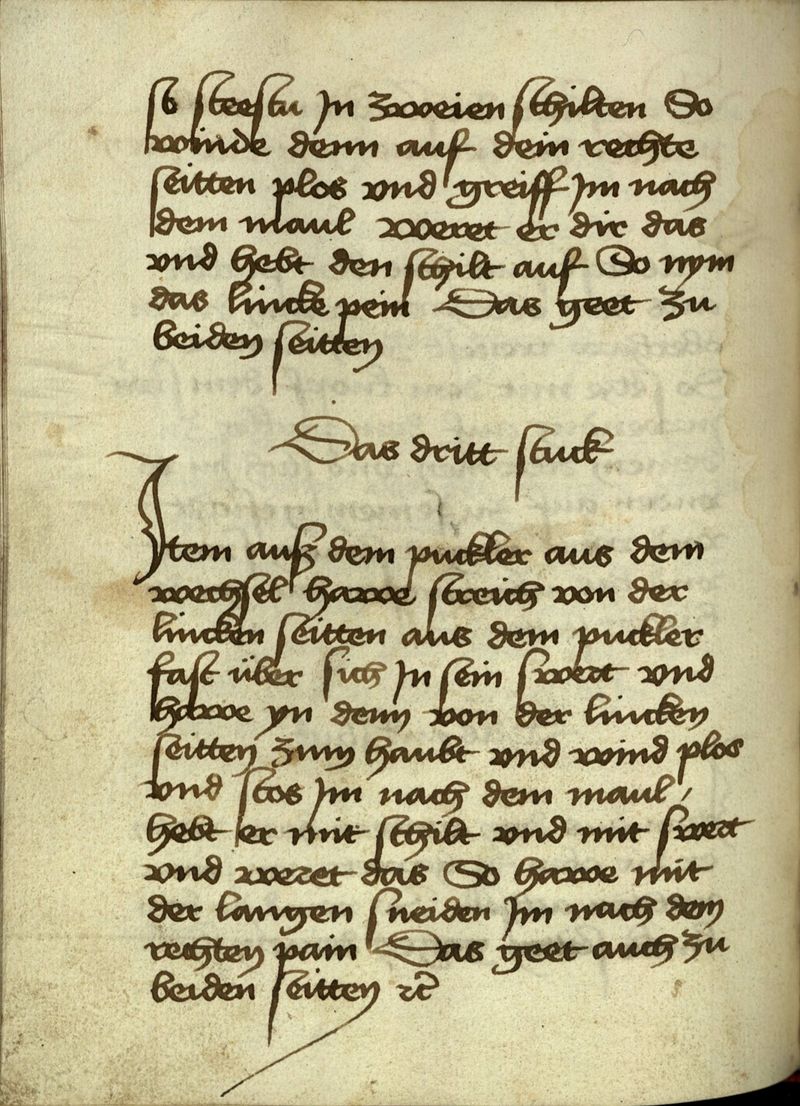 so steestu In zweien schilten So
winde denn auf dein rechte
seitten plos vnd greiff Im nach
dem maul weret er dir das
vnd hebt den schilt auf So nym
das lincke pein Das geet zu
beiden seitten
Das dritt stuck
Item auß dem puckler aus dem
wechsel hawe streich von der
lincken seitten aus dem puckler
fast über sich In sein swert vnd
hawe yn denn von der lincken
seitten zum haubt vnd wind plos
vnd stos Im nach dem maul /
hebt er mit schilt vnd mit swert
vnd weret das So hawe mit
der langen sneiden Im nach dem
rechten pain Das geet auch zu
beiden seitten ꝛc̃